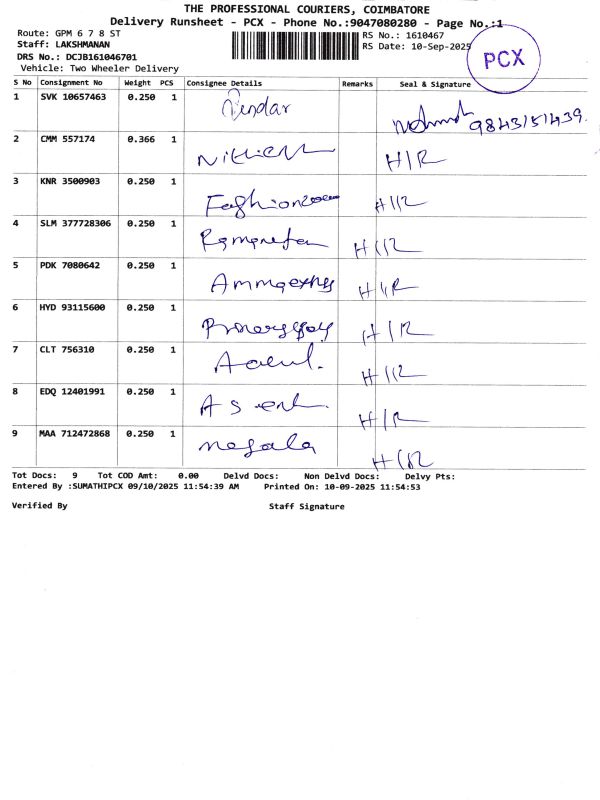 THE PROFESSIONAL COURIERS, COIMBATORE
Delivery Runsheet - PCX - Phone No.:9047080280 - Page No.:1
Route: GPM 6 7 8 ST
Staff: LAKSHMANAN
DRS No.: DCJB161046701
Vehicle: Two Wheeler Delivery
RS No.: 1610467
RS Date: 10-Sep-2025
PCX
S No Consignment No Weight PCS Consignee Details Remarks Seal & Signature
1 SVK 10657463 0.250 1
2 CMM 557174 0.366 1 H/R
3 KNR 3500903 0.250 1 H/R
4 SLM 377728306 0.250 1 H/R
5 PDK 7080642 0.250 1 H/R
6 HYD 93115600 0.250 1 H/R
7 CLT 756310 0.250 1 H/R
8 EDQ 12401991 0.250 1 H/R
9 MAA 712472868 0.250 1 H/R
Tot Docs: 9 Tot COD Amt: 0.00 Delvd Docs: Non Delvd Docs: Delvy Pts:
Entered By :SUMATHIPCX 09/10/2025 11:54:39 AM Printed On: 10-09-2025 11:54:53
Verified By Staff Signature